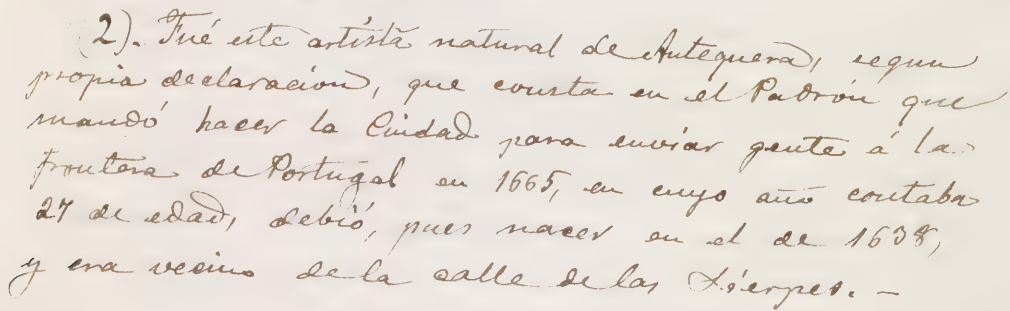 (2). Fué este artista natural de Antequera, segun
propia declaración, que consta en el Padrón que
mandó hacer la Ciudad para enviar gente á la
frontera de Portugal en 1665, en cuyo año contaba
27 de edad, debió, pues nacer en el de 1638,
y era vecino de la calle de las Sierpes. —